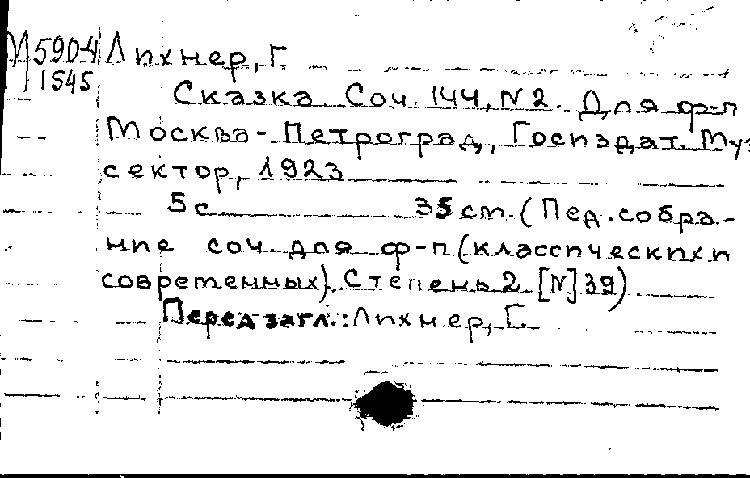 М 590-4 Лихнер, Г.
1545
Сказка Соч. 144, N 2. Для ф-п
Москва-Петроград, Госиздат. Муз
сектор, 1923
5 с 35 см. (Пед. собра-
ние соч. для ф-п (классических и
современных). Степень 2 [N] 39)
Перед загл.: Лихнер, Г.